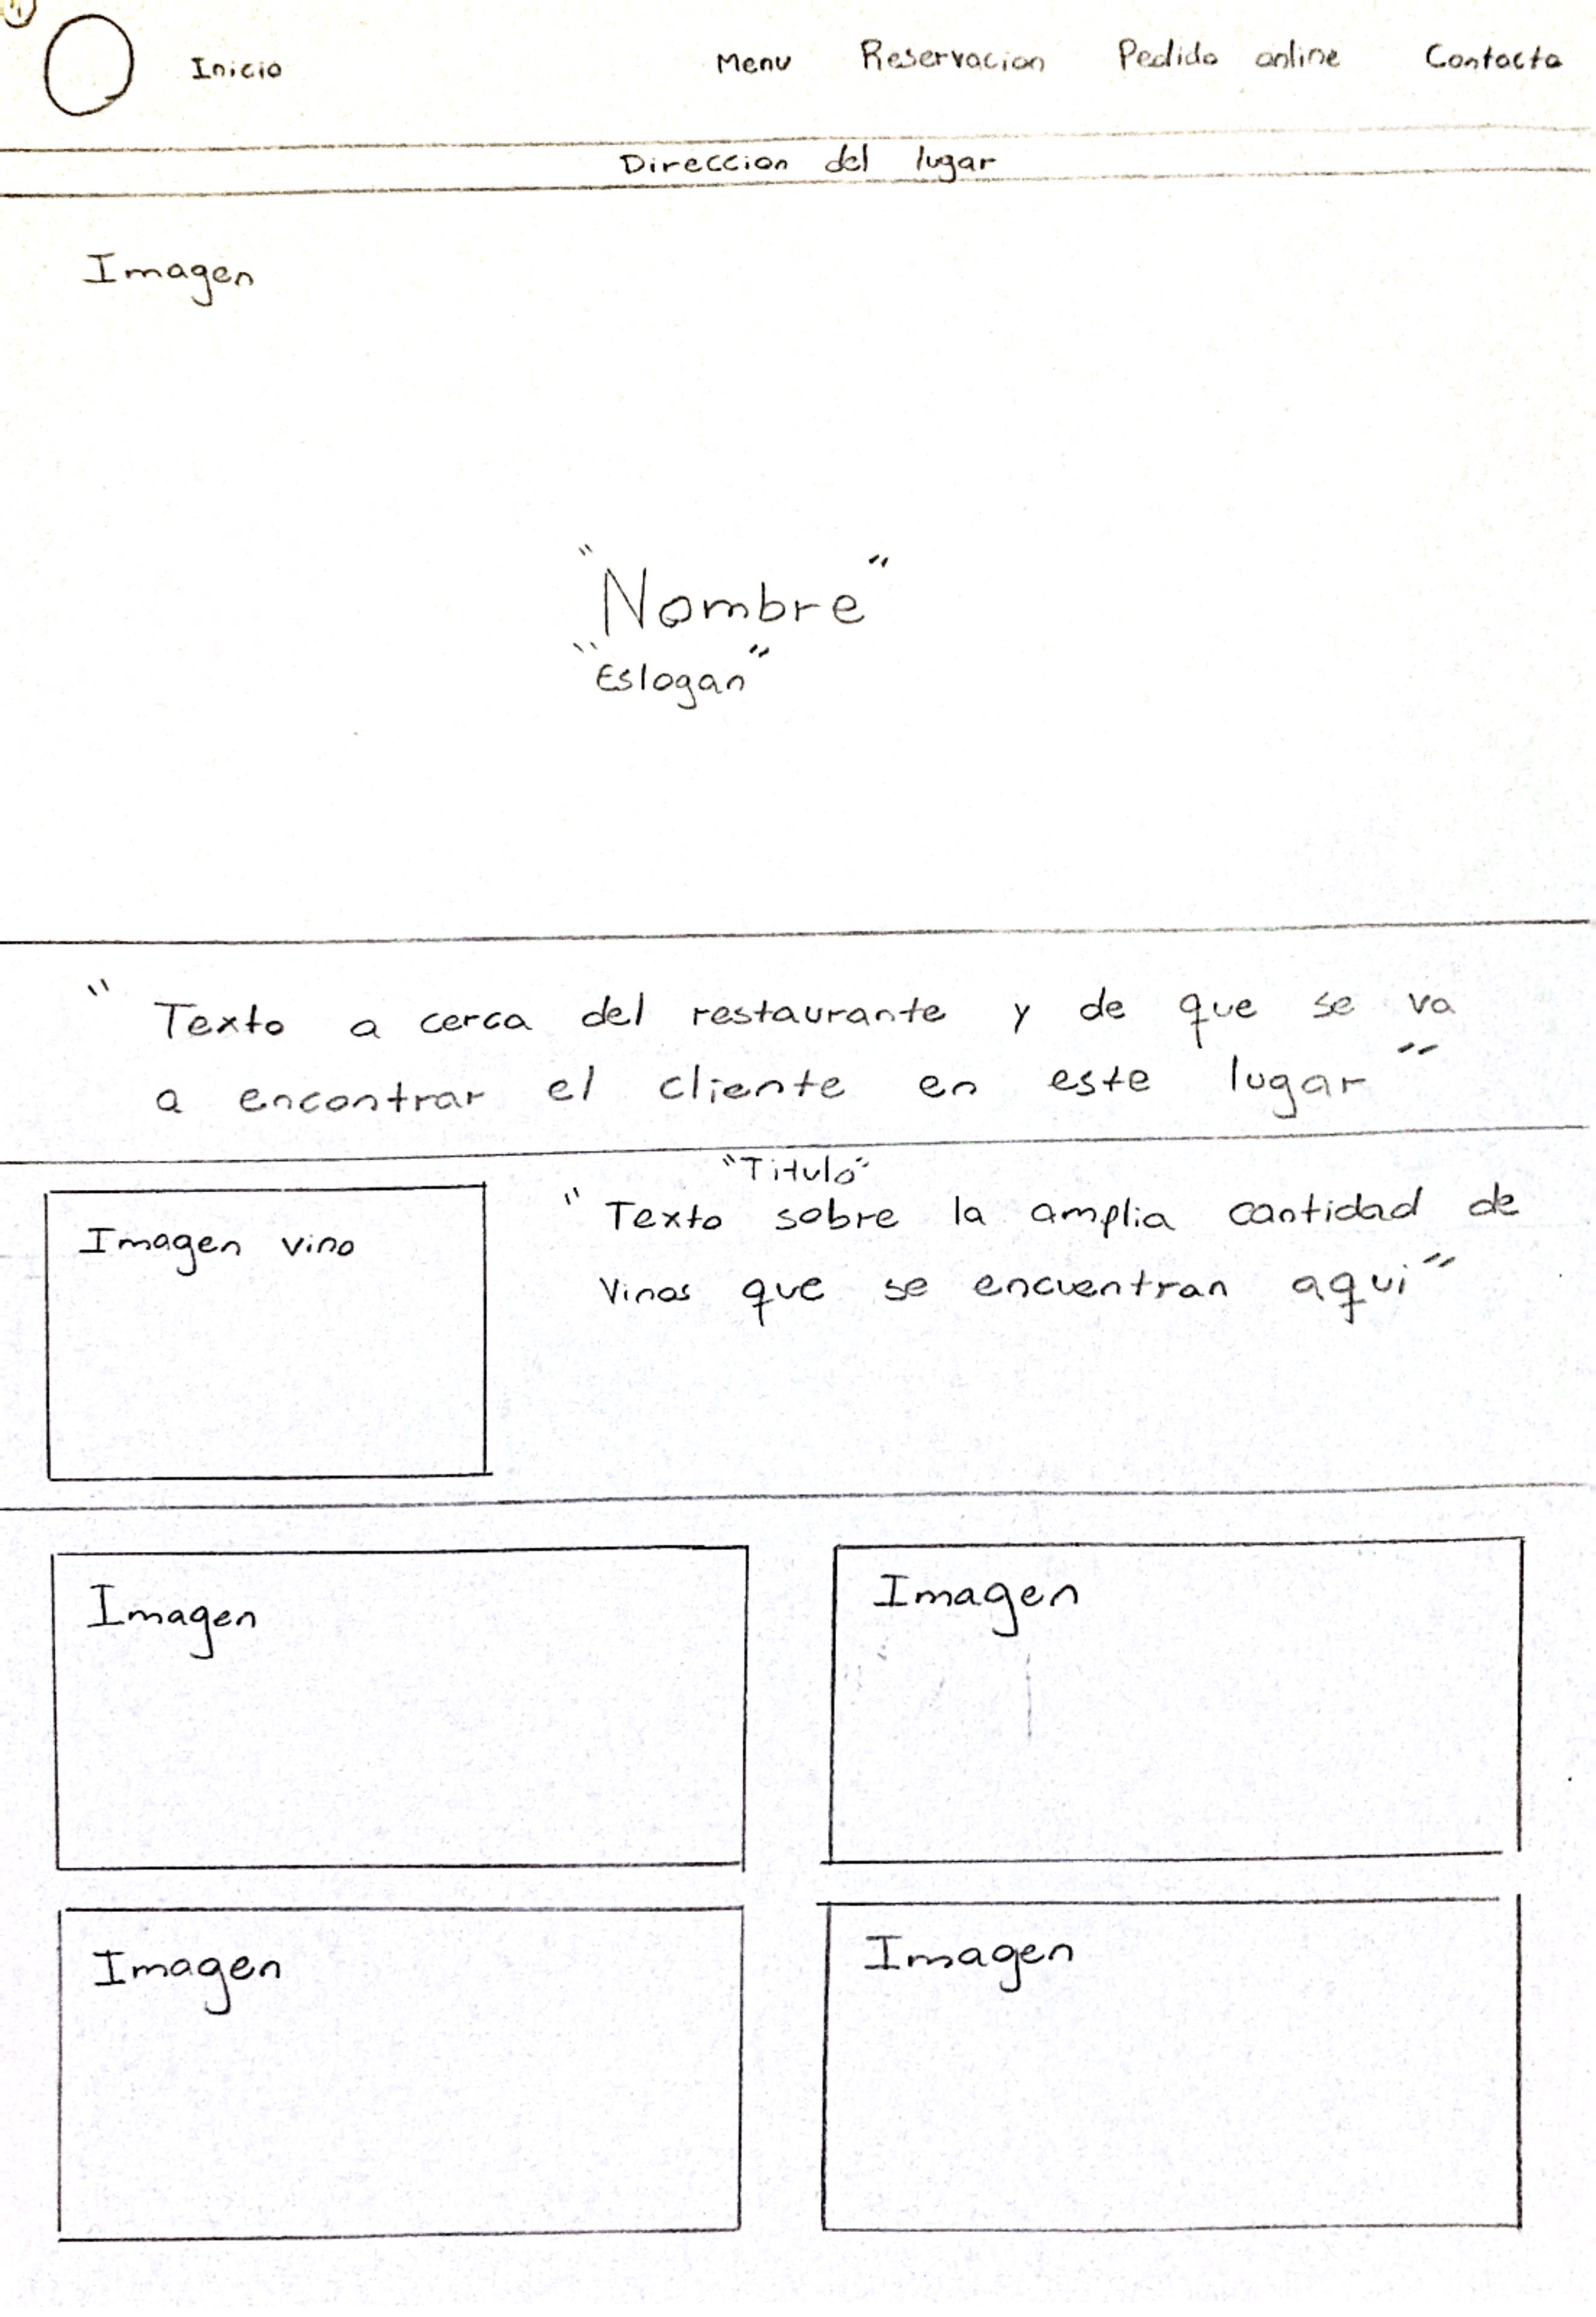 Inicio Menu Reservacion Pedido online Contacto
Direccion del lugar
Imagen
"Nombre"
"Eslogan"
" Texto a cerca del restaurante y de que se va
a encontrar el cliente en este lugar "
"Titulo"
Imagen vino
" Texto sobre la amplia cantidad de
Vinos que se encuentran aqui "
Imagen Imagen
Imagen Imagen